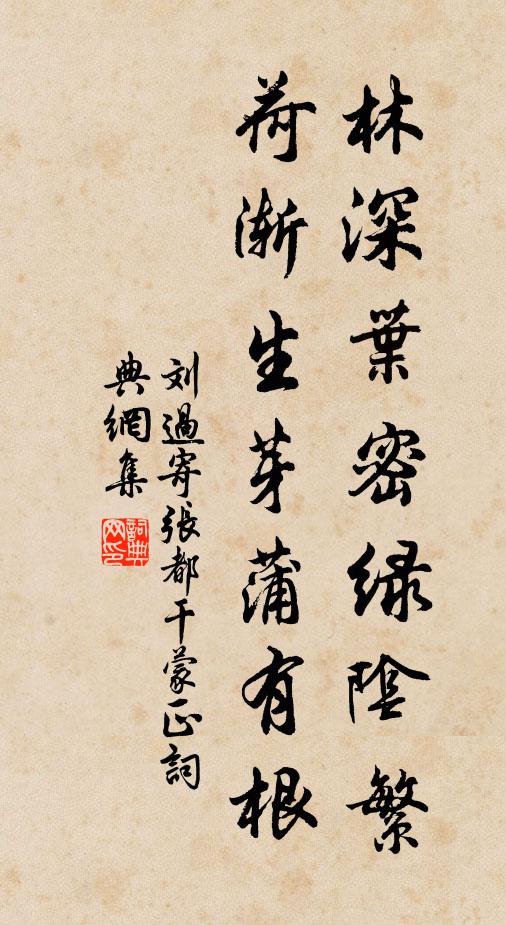 林深葉密绿陰繁
荷渐生芽蒲有根
刘過寄張都干蒙正詞
典網集
詞典网印